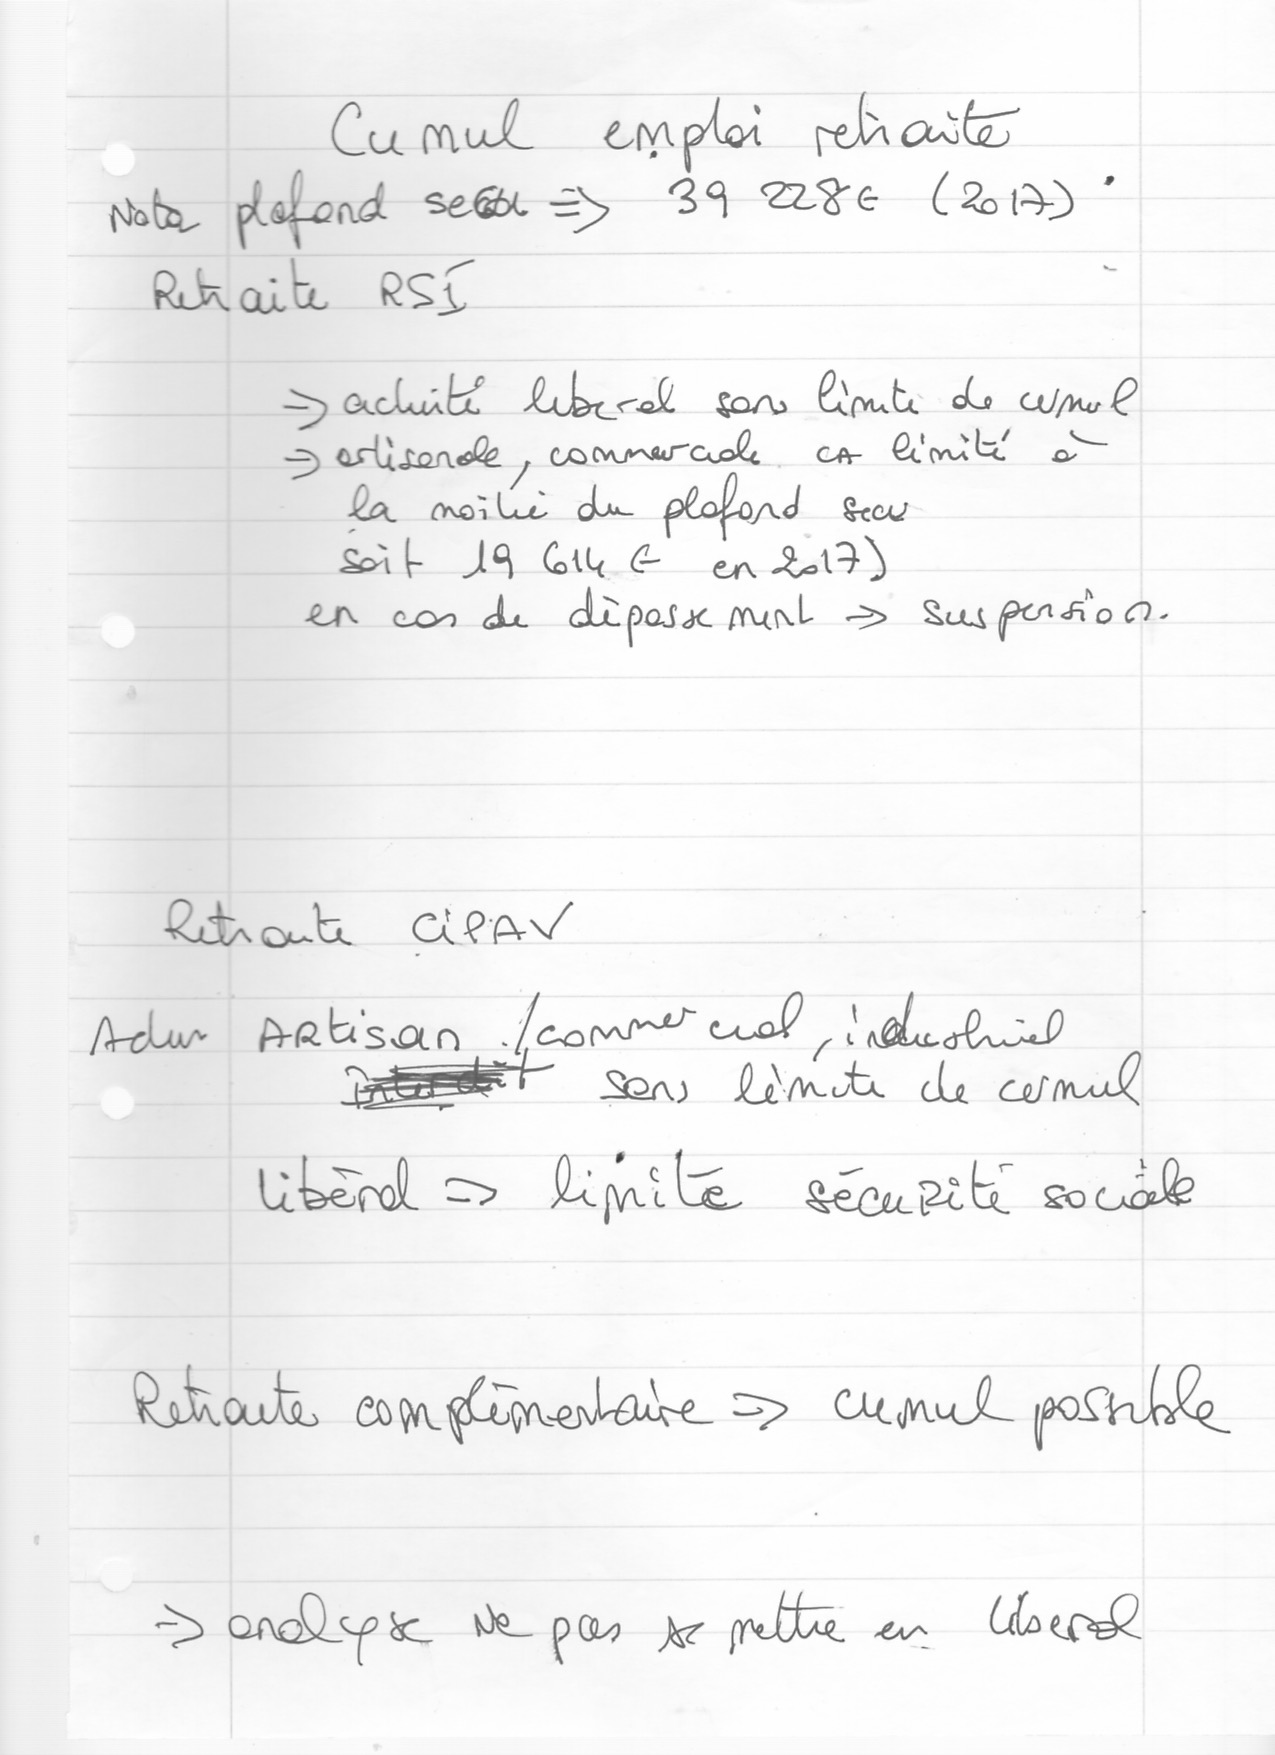 Cumul emploi retraite
Nota plafond secu => 39 228€ (2017)
Retraite RSI
=> activité liberal sans limite de cumul
=> artisanale, commerciale CA limité à
la moitié du plafond secu
soit 19 614 € en 2017)
en cas de dépassement => suspension.
Retraite CiPAV
Artisan /commercial, industriel
sans limite de cumul
libéral => limite sécurité sociale
Retraite complémentaire => cumul possible
=> analyse Ne pas se mettre en liberal